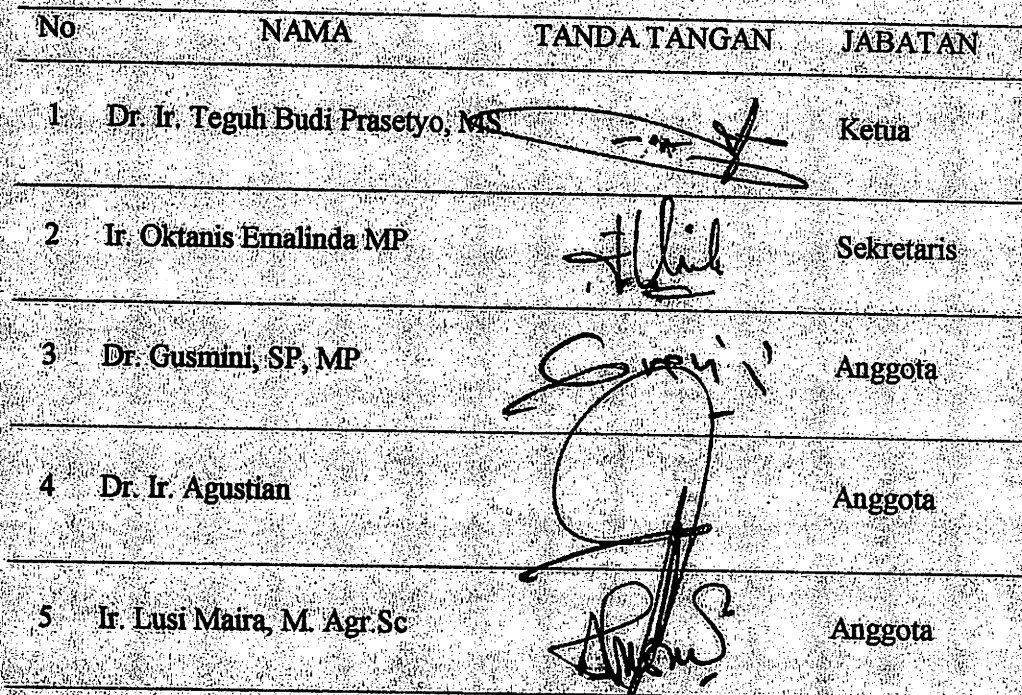 No NAMA TANDA TANGAN JABATAN
1 Dr. Ir. Teguh Budi Prasetyo, MS Ketua
2 Ir. Oktanis Emalinda MP Sekretaris
3 Dr. Gusmini, SP, MP Anggota
4 Dr. Ir. Agustian Anggota
5 Ir. Lusi Maira, M. Agr.Sc Anggota